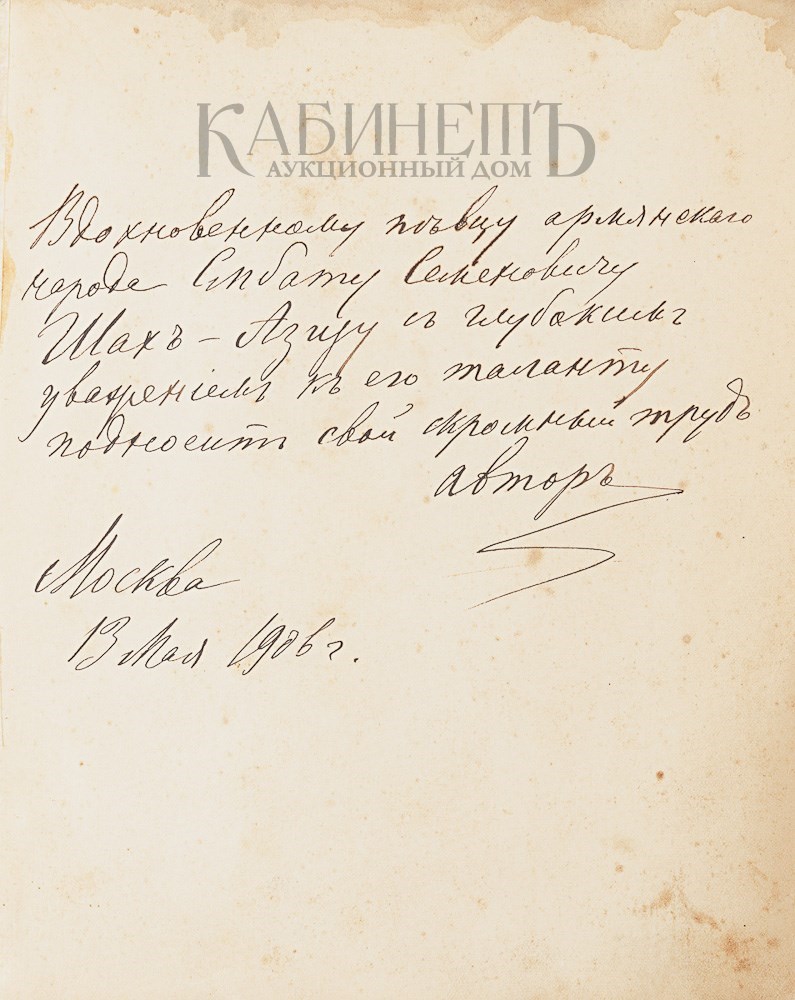 КАБИНЕТЪ
АУКЦИОННЫЙ ДОМ
Вдохновенному пѣвцу армянскаго
народа Смбату Семеновичу
Шахъ-Азизу съ глубокимъ
уваженіемъ къ его таланту
подноситъ свой скромный трудъ
авторъ
Москва
13 мая 1906 г.